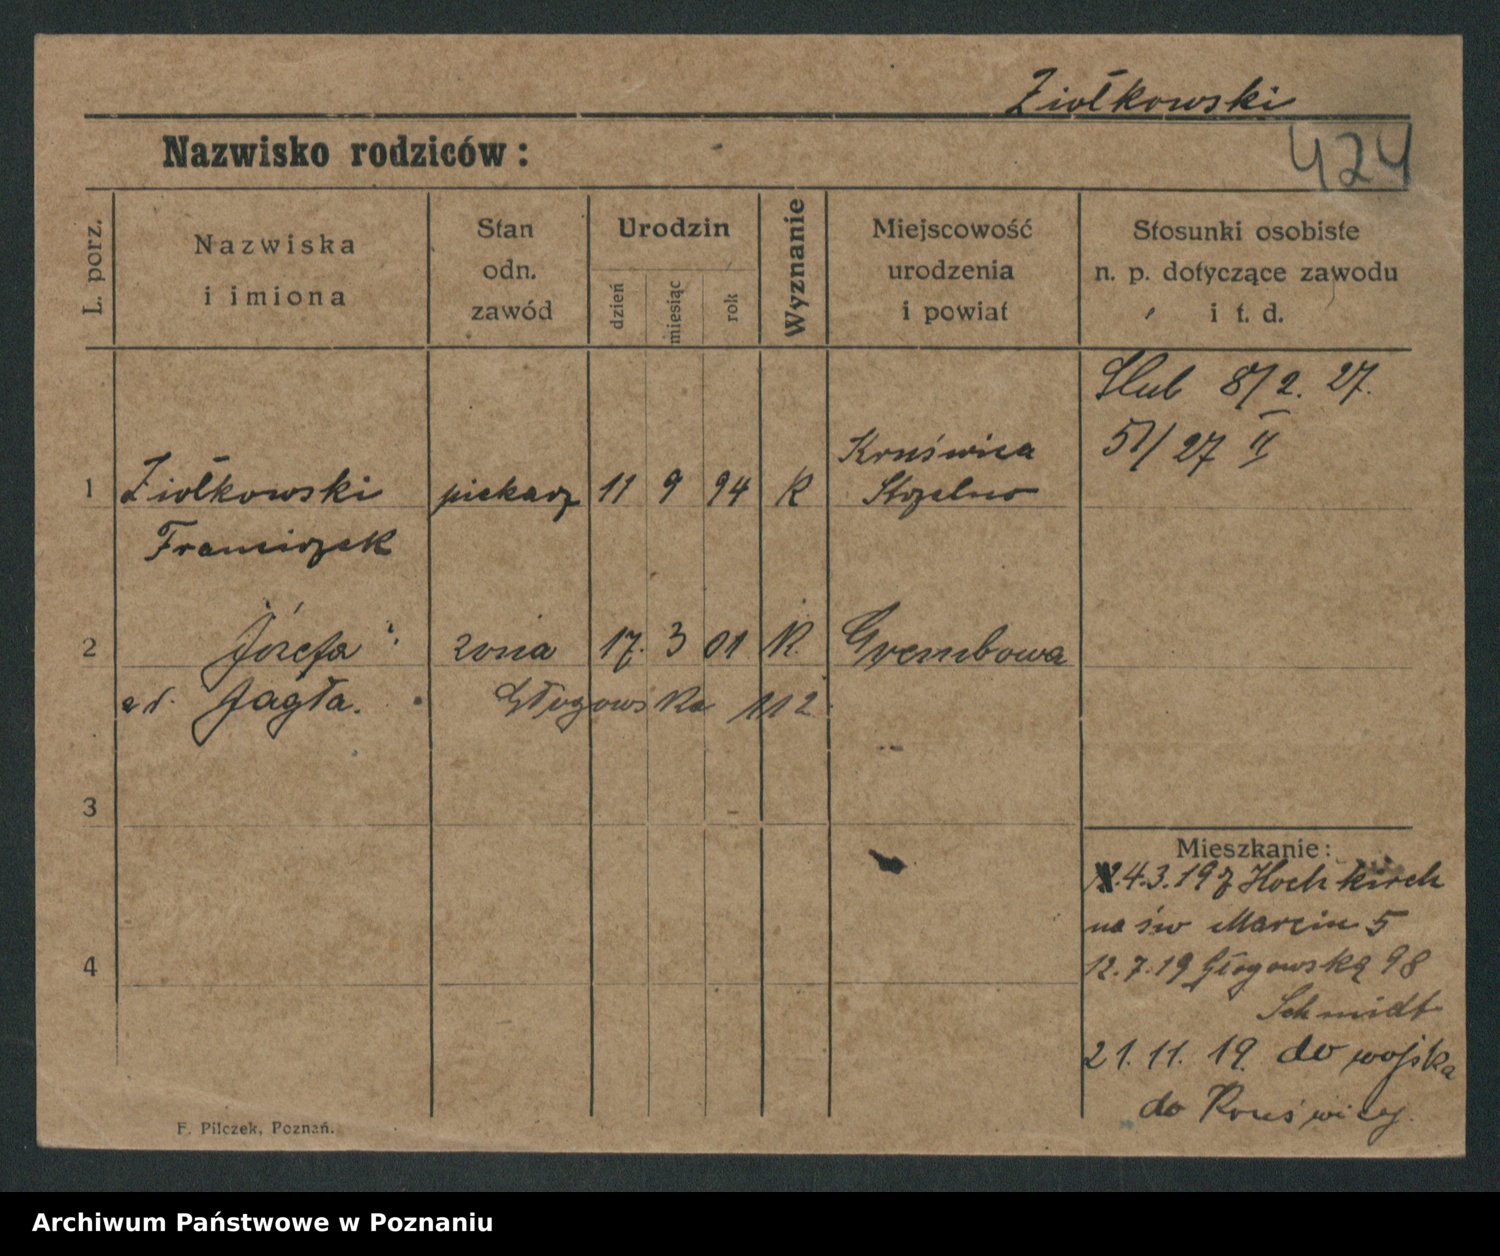 Ziołkowski
Nazwisko rodziców :
424
L. porz.
Nazwiska
i imiona
Stan
odn.
zawód
Urodzin
dzień
miesiąc
rok
Wyznanie
Miejscowość
urodzenia
i powiat
Stosunki osobiste
n. p. dotyczące zawodu
i t. d.
Ślub 8/2. 27.
51/27 II
1 Ziołkowski piekarz 11 9 94 K Kruświca
Strzelno
Franciszek
2 Józefa żona 17. 3 01 K. Grembowa
Jagła. Głogowska 112
3
4
Mieszkanie :
4.3.19 z Hochkirch
na św Marcin 5
12.7.19 Głogowską 98
Schmidt
21.11.19. do wojska
do Kruświcy.
F. Pilczek, Poznań.
Archiwum Państwowe w Poznaniu